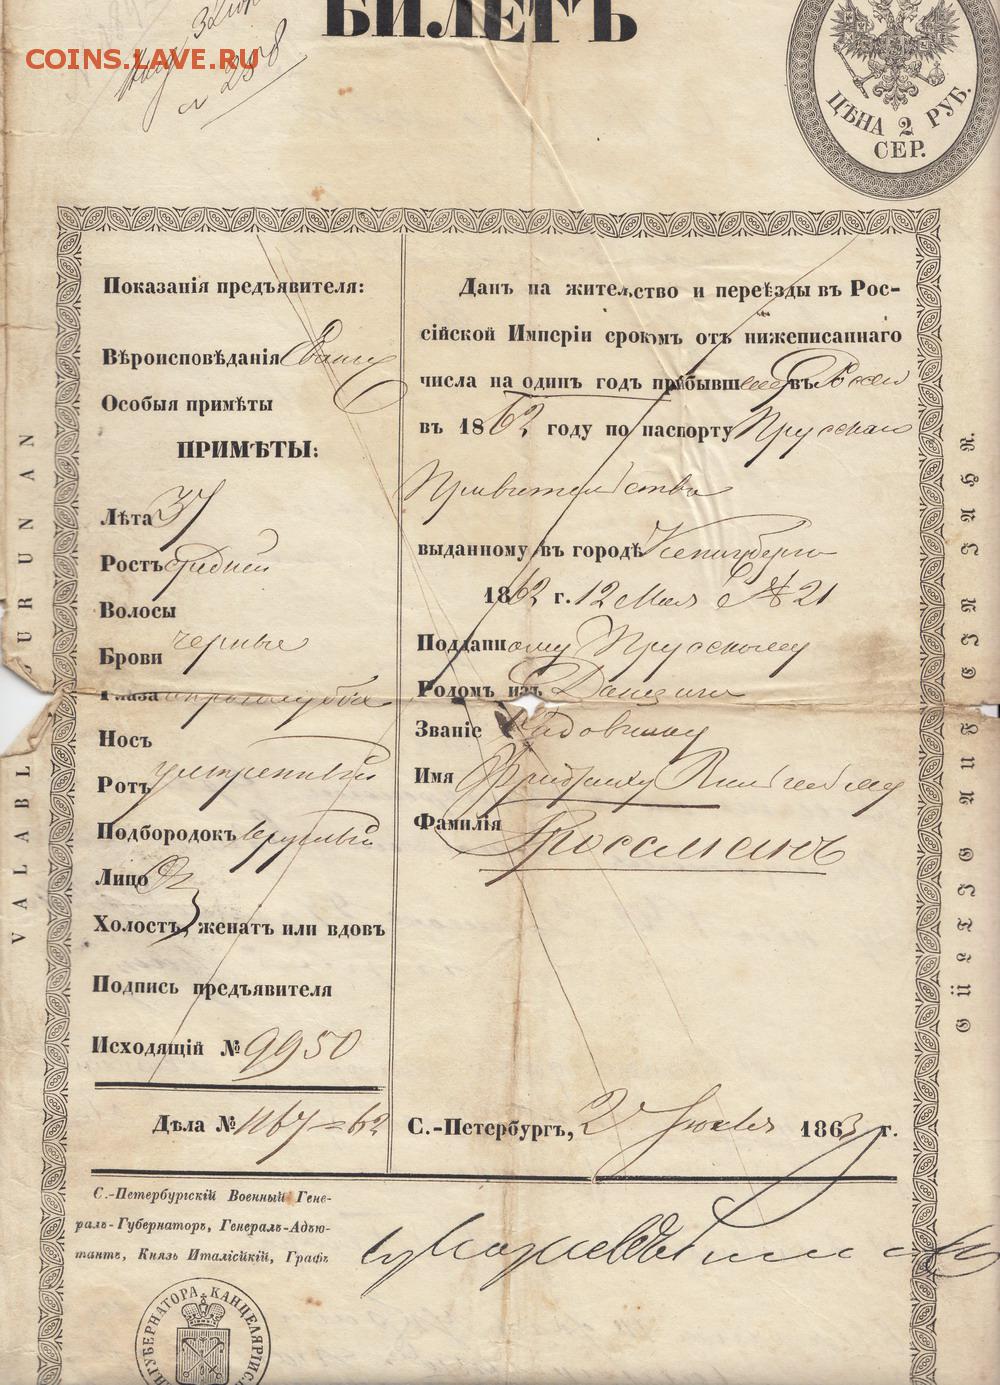 БИЛЕТЪ
COINS.LAVE.RU
№ 2558
ЦѢНА 2 РУБ.
СЕР.
Показанія предъявителя:
Вѣроисповѣданія Еванг
Особыя примѣты
ПРИМѢТЫ:
Лѣта 37
Ростъ средній
Волосы
черные
Брови
Глаза
Носъ
умѣренный
Ротъ
Подбородокъ круглый
Лицо
Холостъ, женатъ или вдовъ
Подпись предъявителя
Исходящій № 9950
Дѣла № 1167=62
Данъ на жительство и переѣзды въ Рос-
сійской Имперіи срокомъ отъ нижеписаннаго
числа на одинъ годъ прибывшему въ Россію
въ 1862 году по паспорту Прусскаго
Правительства
выданному въ городѣ Кенигсберге
1862 г. 12 Мая № 21
Подданному Прусскому
Родомъ изъ Данцига
Званіе Садовнику
Имя Фридриху Вильгельму
Фамилія Гроссманъ
С.-Петербургъ, 2 Іюля 1863 г.
С.-Петербургскій Военный Гене-
ралъ-Губернаторъ, Генералъ-Адъю-
тантъ, Князь Италійскій, Графъ
ГУБЕРНАТОРА КАНЦЕЛЯРІЯ
VALABL
OURUNAN